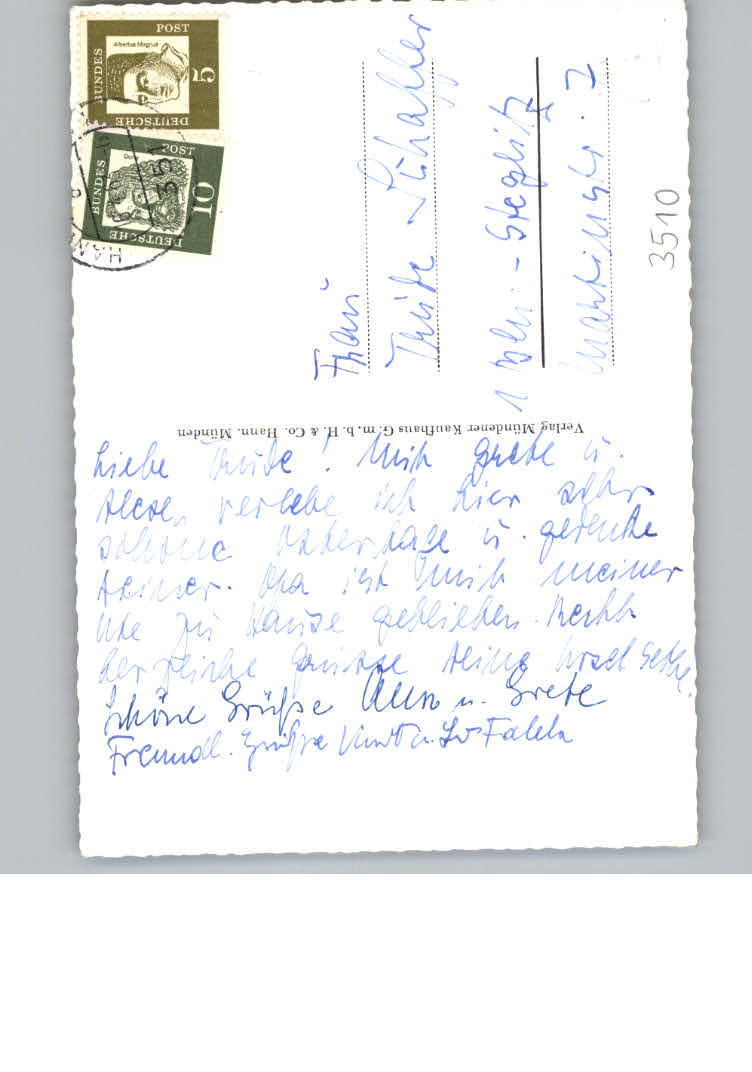 DEUTSCHE
BUNDES
POST
5
Albertus Magnus
DEUTSCHE
BUNDES
POST
10
351
HAN
Frau
Trude Schaffer
1 Bln.-Steglitz
Martinstr. 2
3510
Verlag Mündener Kaufhaus G.m.b.H. & Co. Hann. Münden
Liebe Trude! Mit Grete u.
verlebe ich hier sehr
schöne Ostertage u. gedenke
Deiner. Opa ist mit meiner
Ute zu Hause geblieben. Recht
herzliche Grüsse Deine Ursel
Schöne Grüße u. Grete
Freundl. Grüße